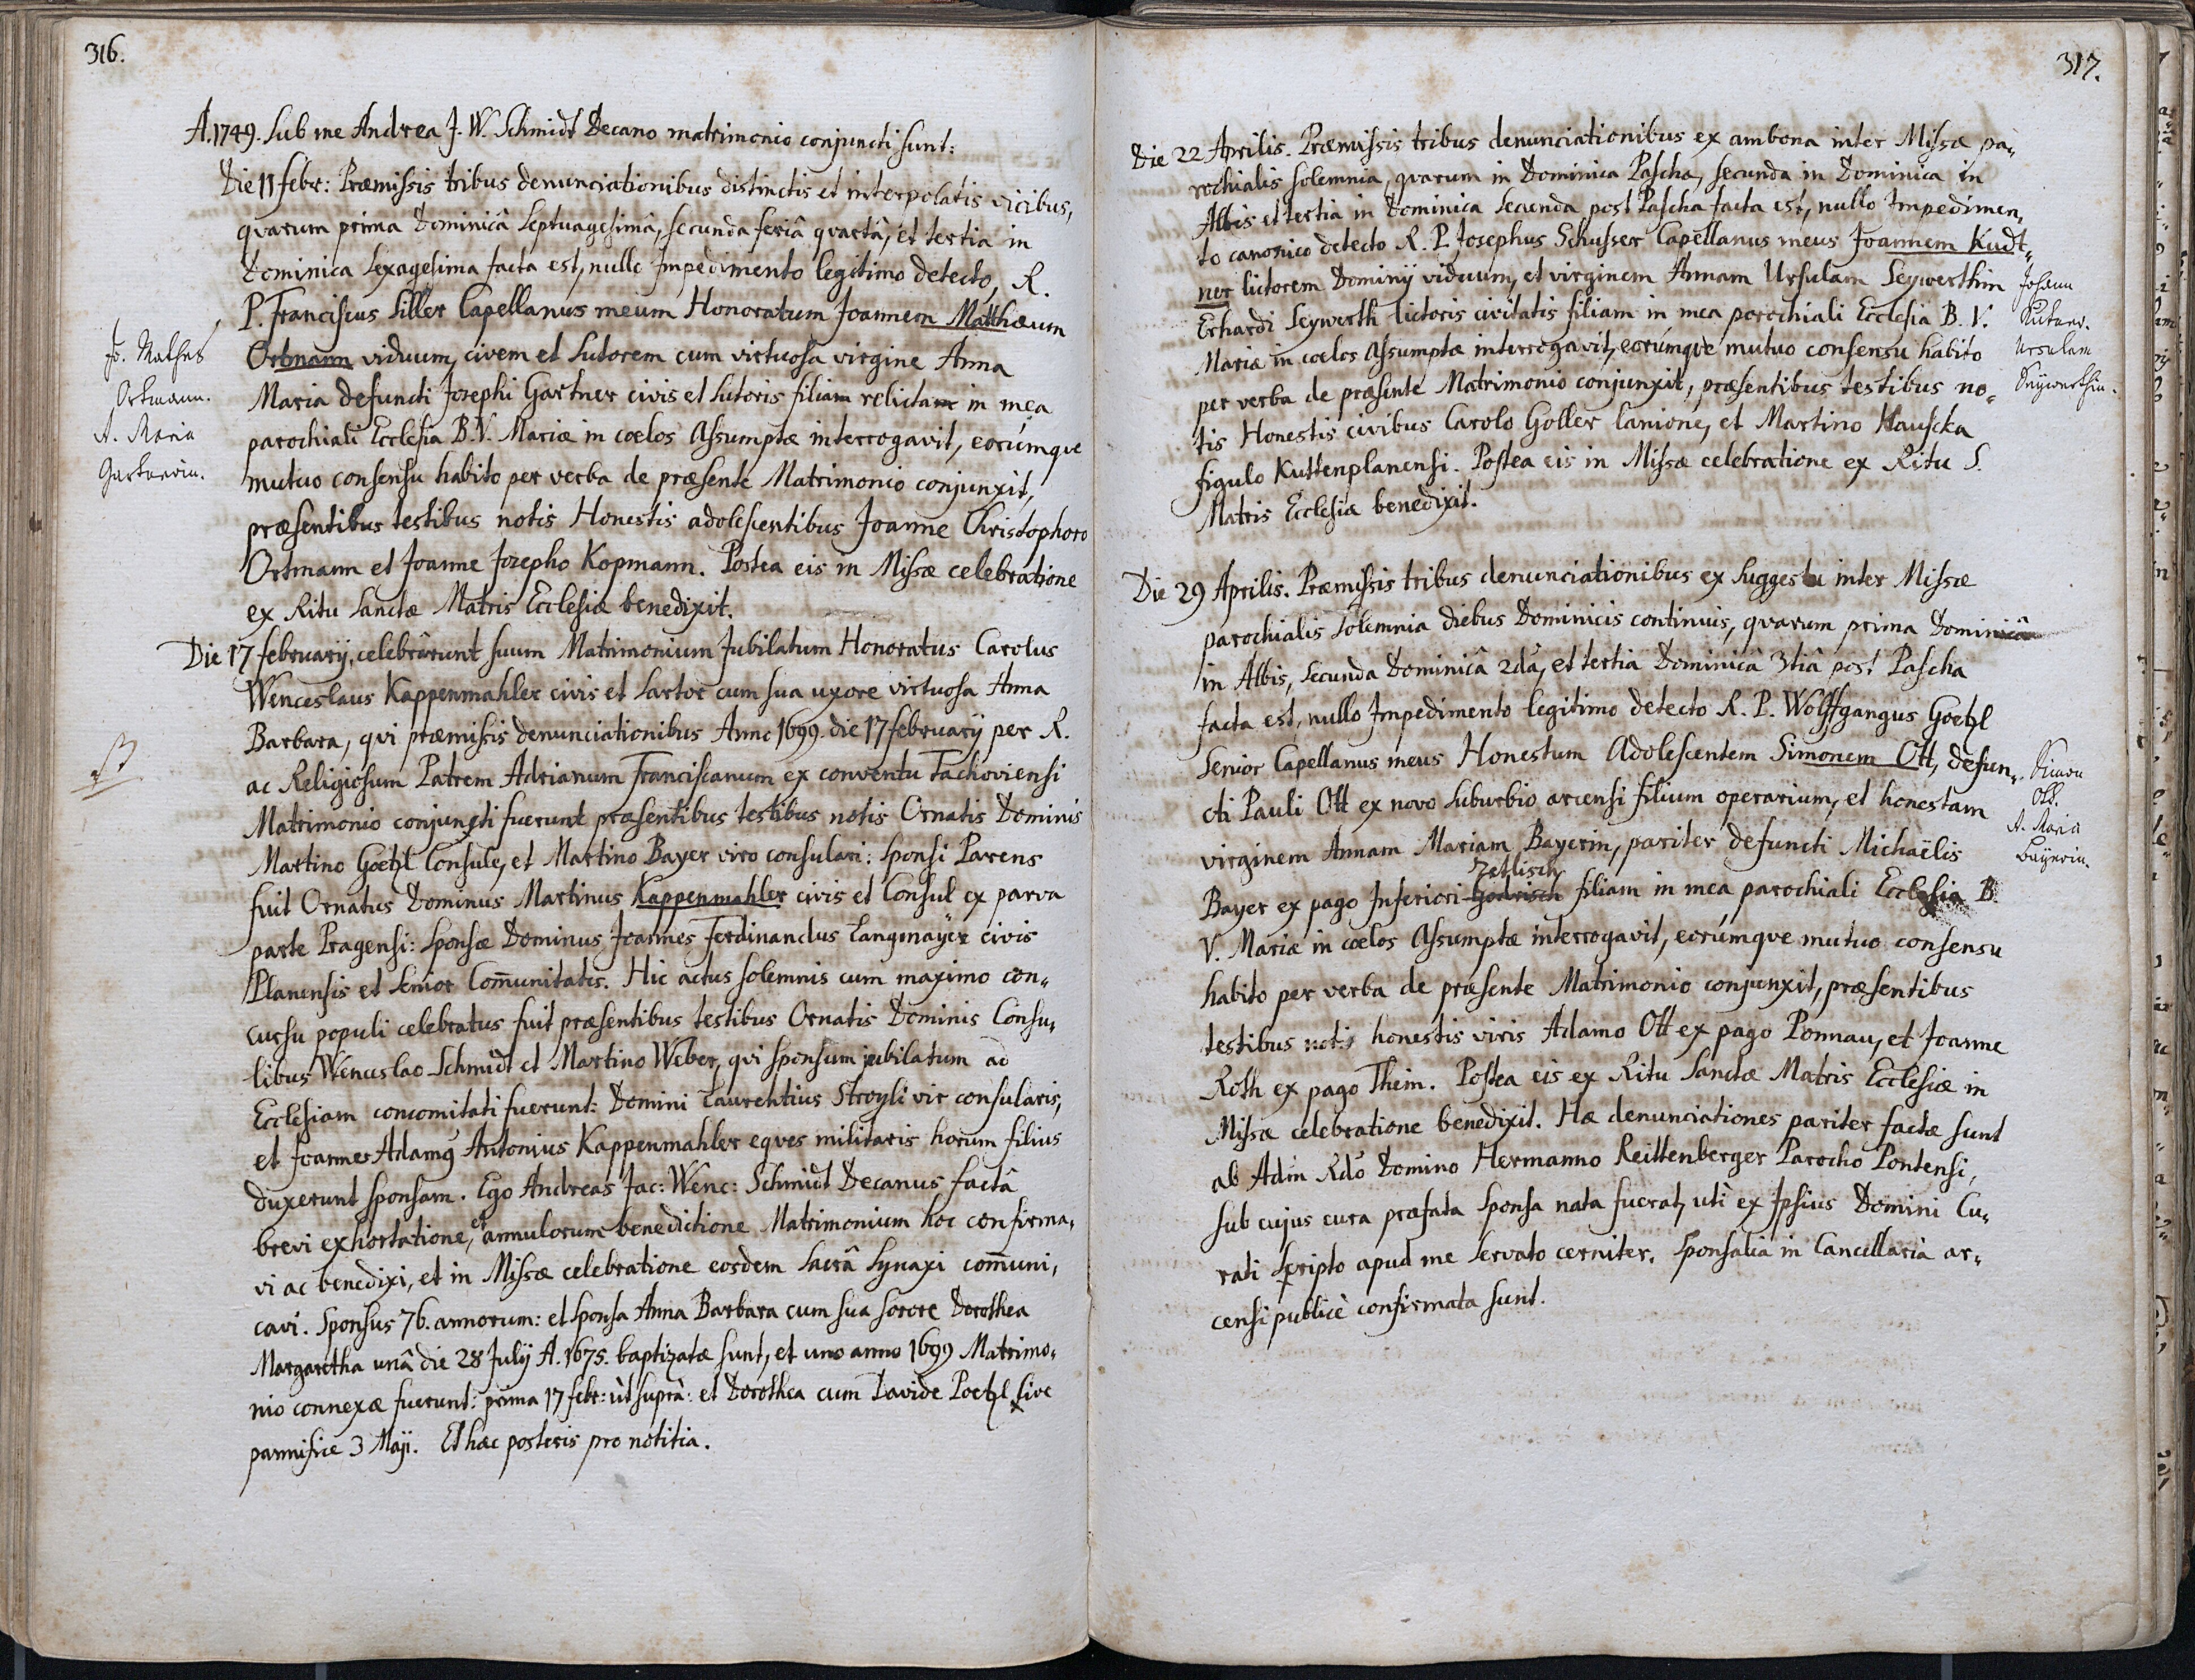 316.
A. 1749. Sub me Andrea J. W. Schmidt Decano matrimonio conjuncti sunt:
Die 11 febr: Præmissis tribus denunciationibus distinctis et interpolatis vicibus,
qvarum prima Dominicâ Septuagesimâ, secunda feriâ qvartâ, et tertia in
Dominica Sexagesima facta est, nullo Impedimento legitimo detecto, R.
P. Franciscus Siller Capellanus meum Honoratum Joannem Matthæum
Ortmann viduum, civem et Sutorem cum virtuosa virgine Anna
Maria defuncti Josephi Gartner civis et Sutoris filiam relictam in mea
parochiali Ecclesia B. V. Mariæ in coelos Assumptæ interrogavit, eorúmqve
mutuo consensu habito per verba de præsente Matrimonio conjunxit,
præsentibus testibus notis Honestis adolescentibus Joanne Christophoro
Ortmann et Joanne Josepho Kopmann. Postea eis in Missæ celebratione
ex Ritu Sanctæ Matris Ecclesiæ benedixit.
Jo. Mathes
Ortmann.
A. Maria
Gartnerin.
Die 17 february, celebrârunt suum Matrimonium Jubilatum Honoratus Carolus
Wenceslaus Kappenmahler civis et Sartor cum sua uxore virtuosa Anna
Barbara, qvi præmissis denunciationibus Anno 1699. die 17 februarÿ per R.
ac Religiosum Patrem Adrianum Franciscanum ex conventu Tachoviensi
Matrimonio conjuncti fuerunt præsentibus testibus notis Ornatis Dominis
Martino Goetzl Consule, et Martino Bayer viro consulari: Sponsi Parens
fuit Ornatus Dominus Martinus Kappenmahler civis et Consul ex parva
parte Pragensi: Sponsæ Dominus Joannes Ferdinandus Langmaÿer civis
Planensis et Senior Com̄unitatis. Hic actus solemnis cum maximo con„
cursu populi celebratus fuit præsentibus testibus Ornatis Dominis Consu„
libus Wenceslao Schmidt et Martino Weber, qvi sponsum jubilatum ad
Ecclesiam concomitati fuerunt: Domini Laurentius Stroyli vir consularis,
et Joannes Adamg Antonius Kappenmahler eqves militaris horum filius
duxerunt sponsam. Ego Andreas Jac: Wenc: Schmidt Decanus factâ
brevi exhortatione, et annulorum benedictione Matrimonium hoc confirma„
vi ac benedixi, et in Missæ celebratione eosdem Sacrâ Synaxi com̄uni„
cavi. Sponsus 76. annorum: et Sponsa Anna Barbara cum sua sorore Dorothea
Margaretha unâ die 28 Julÿ A. 1675. baptizatæ sunt, et uno anno 1699 Matrimo„
nio connexæ fuerunt: prima 17 febr: ùt suprà: et Dorothea cum Davide Poetzl sive
pannifice 3 Maji. Et hæc posteris pro notitia.
317.
Die 22 Aprilis. Præmissis tribus denunciationibus ex ambona inter Missæ pa„
rochialis solemnia, qvarum in Dominica Pascha, secunda in Dominica in
Albis et tertia in Dominica Secunda post Pascha facta est, nullo Impedimen„
to canonico detecto R. P. Josephus Schusser Capellanus meus Joannem Kudt„
ner lictorem Dominÿ viduum, et virginem Annam Ursulam Seywerthin
Erhardi Seywerth lictoris civitatis filiam in mea parochiali Ecclesia B. V.
Mariæ in coelos Assumptæ interrogavit, eorúmqve mutuo consensu habito
per verba de præsente Matrimonio conjunxit, præsentibus testibus no„
tis Honestis civibus Carolo Goller Lanione, et Martino Hauscka
figulo Kuttenplanensi. Postea eis in Missæ celebratione ex Ritu S.
Matris Ecclesiæ benedixit.
Johann
Kutner.
Ursulam
Seÿwerthin.
Die 29 Aprilis. Præmissis tribus denunciationibus ex Suggestu inter Missæ
parochialis Solemnia diebus Dominicis continuis, qvarum prima Dominicâ
in Albis, Secunda Dominicâ 2dâ, et tertia Dominicâ 3tiâ post Pascha
facta est, nullo Impedimento legitimo detecto R. P. Wolffgangus Goetzl
Senior Capellanus meus Honestum Adolescentem Simonem Ott, defun„
cti Pauli Ott ex novo suburbio arcensi filium operarium, et honestam
virginem Annam Mariam Bayerin, pariter defuncti Michaëlis
Zetlisch
Bayer ex pago Inferiori Godrisch filiam in mea parochiali Ecclesia B.
V. Mariæ in coelos Assumptæ interrogavit, eorúmqve mutuo consensu
habito per verba de præsente Matrimonio conjunxit, præsentibus
testibus notis honestis viris Adamo Ott ex pago Ponnau, et Joanne
Roth ex pago Thein. Postea eis ex Ritu Sanctæ Matris Ecclesiæ in
Missæ celebratione benedixit. Hæ denunciationes pariter factæ sunt
ab Adm̄ Rdō Domino Hermanno Reittenberger Parocho Pontensi,
sub cujus cura præfata Sponsa nata fuerat, utì ex Ipsius Domini Cu„
rati Scripto apud me servato cerniter. Sponsalia in Cancellaria ar„
censi publicè confirmata sunt.
Simon
Ott.
A. Maria
Baÿerin.